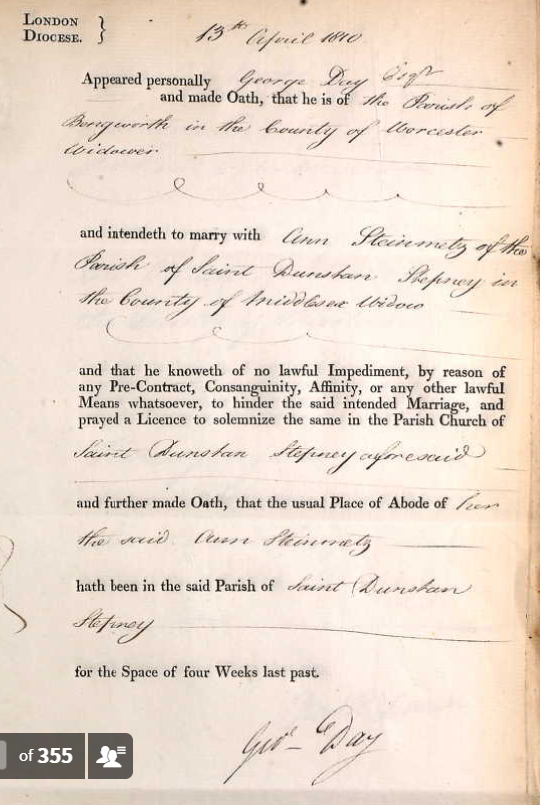 LONDON
DIOCESE. }
13th April 1840
Appeared personally George Day Esqr
and made Oath, that he is of the Parish of
Bengworth in the County of Worcester
Widower
and intendeth to marry with Ann Steinmetz of the
Parish of Saint Dunstan Stepney in
the County of Middlesex Widow
and that he knoweth of no lawful Impediment, by reason of
any Pre-Contract, Consanguinity, Affinity, or any other lawful
Means whatsoever, to hinder the said intended Marriage, and
prayed a Licence to solemnize the same in the Parish Church of
Saint Dunstan Stepney aforesaid
and further made Oath, that the usual Place of Abode of her
the said Ann Steinmetz
hath been in the said Parish of Saint Dunstan
Stepney
for the Space of four Weeks last past.
Geo. Day
of 355